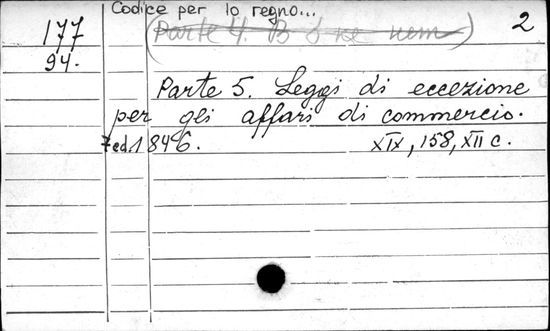 Codice per lo regno...
177 (Parte 4. B ne nem) 2
94.
Parte 5. Leggi di eccezione
per gli affari di commercio.
7ed.1846. XIX, 158, XII c.